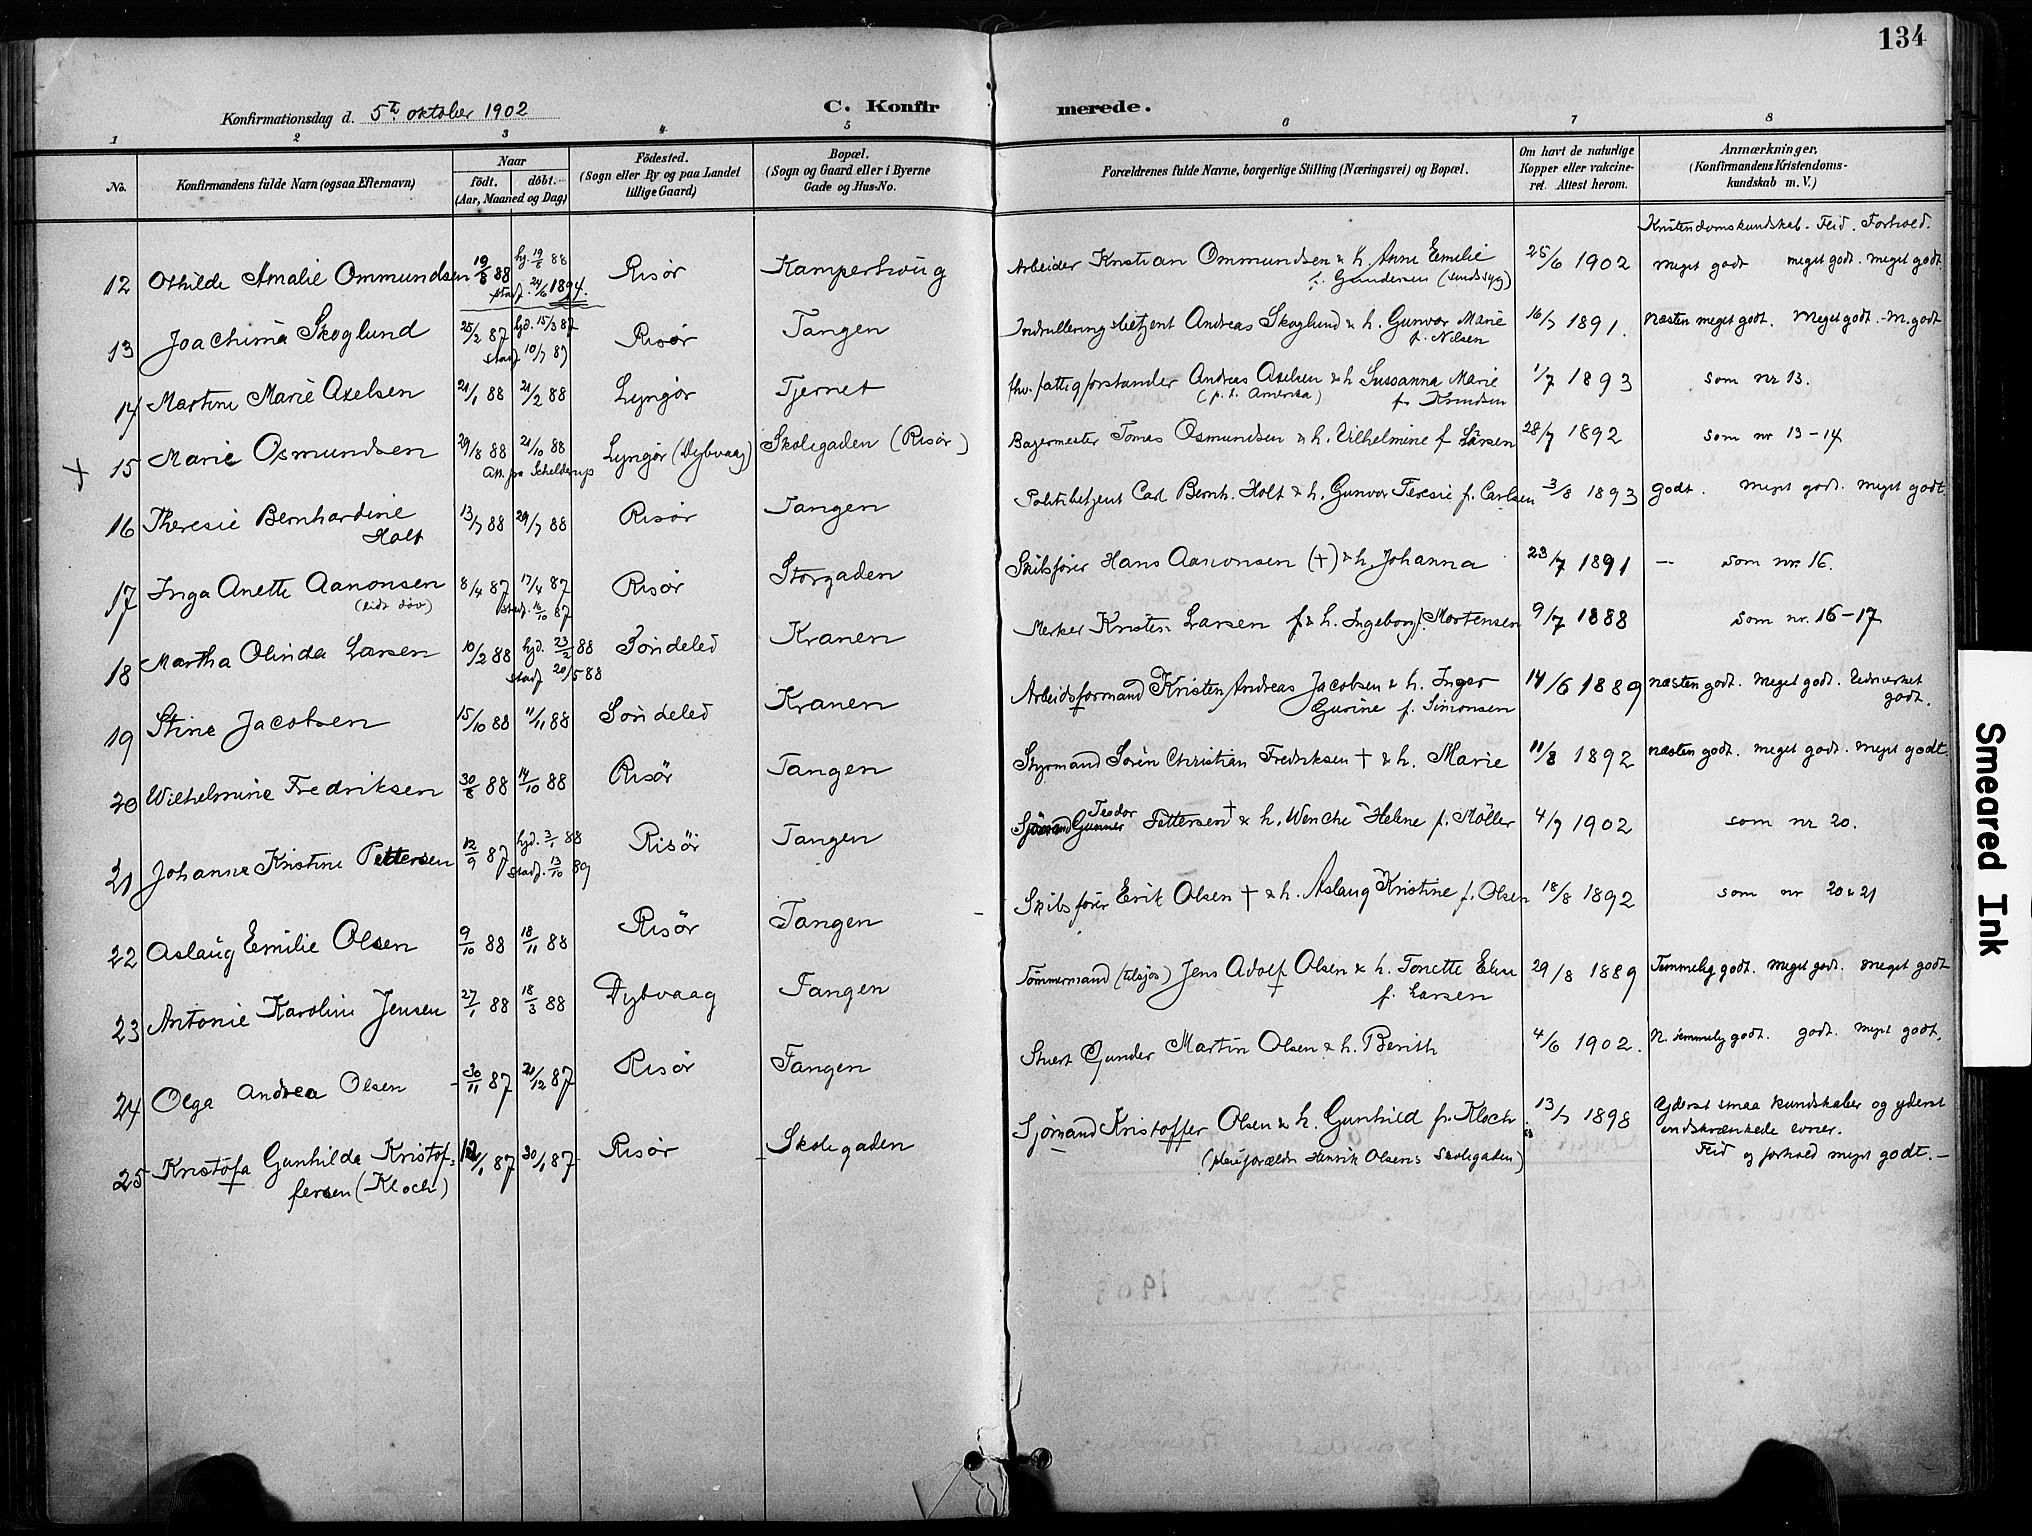 134
Konfirmationsdag d. 5te oktober 1902
C. Konfirmerede.
1 2 3 4 5 6 7 8
No.
Konfirmandens fulde Navn (ogsaa Efternavn)
Naar
født. døbt.
(Aar, Maaned og Dag)
Fødested.
(Sogn eller By og paa Landet
tillige Gaard)
Bopæl.
(Sogn og Gaard eller i Byerne
Gade og Hus-No.
Forældrenes fulde Navne, borgerlige Stilling (Næringsvei) og Bopæl.
Om havt de naturlige
Kopper eller vakcine-
ret. Attest herom.
Anmærkninger,
(Konfirmandens Kristendoms-
kundskab m. V.)
Kristendomskundskab. Flid. Forhold.
12 Othilde Amalie Ommundsen 19/8 88 hj. 19/8 88 Risør Kamperhoug Arbeider Kristian Ommundsen & h. Anne Emilie 25/6 1902 meget godt meget godt. meget godt
stadf. 24/6 1894. f. Gundersen (sindssyg)
13 Joachima Skoglund 25/2 87 hjd. 15/3 87 Risør Tangen Indrulleringsbetjent Andreas Skoglund & h. Gunvor Marie 16/7 1891. Næsten meget godt. Meget godt. - M. godt
stadf 10/7 87 f. Nilsen
14 Martine Marie Axelsen 21/1 88 21/2 88 Lyngør Tjernet fhv. fattigforstander Andreas Axelsen & h Sussanna Marie 1/7 1893 som nr 13.
(p. t. Amerika) f. Knudsen
+ 15 Marie Osmundsen 29/8 88 21/10 88 Lyngør (Dybvaag) Skolegaden (Risør) Bagermester Tomas Osmundsen & h. Vilhelmine f Larsen 28/7 1892 som nr 13-14
Att. fra Schelderup
16 Theresie Bernhardine 13/7 88 29/7 88 Risør Tangen Politibetjent Carl Bernh. Holt & h. Gunvor Teresie f. Carlsen 3/8 1893 Godt. Meget godt. meget godt
Holt
17 Inga Anette Aanonsen 8/4 87 17/4 87 Risør Storgaden Skibsfører Hans Aanonsen (+) & h. Johanna 23/7 1891 - som nr. 16.
(lidt døv) stadf. 16/10 87
18 Martha Olinda Larsen 10/2 88 hjd. 23/2 88 Søndeled Kranen Merker Kristen Larsen & h. Ingeborg f. Mortensen 9/7 1888 som nr. 16-17
stadf 20/5 88
19 Stine Jacobsen 15/10 88 11/11 88 Søndeled Kranen Arbeidsformand Kristen Andreas Jacobsen & h. Inger 14/6 1889 næsten godt. Meget godt. Udmerket
Gurine f. Simonsen godt.
20 Wilhelmine Fredriksen 30/8 88 14/10 88 Risør Tangen Styrmand Sørin Christian Fredriksen + & h. Marie 11/8 1892 næsten godt. meget godt. meget godt
21 Johanne Kristine Pettersen 12/9 87 hjd. 3/1 88 Risør Tangen Sjømand Gunner Teodor Pettersen + & h. Wenche Helene f. Möller 4/7 1902 som nr 20.
stadf. 13/10 89
22 Aslaug Emilie Olsen 9/10 88 18/11 88 Risør Tangen Skibsfører Erik Olsen + & h. Aslaug Kristine f. Olsen 18/8 1892 som nr 20 & 21
23 Antonie Karoline Jensen 27/1 88 18/3 88 Dybvaag Tangen Tømmermand (tilsjøs) Jens Adolf Olsen & h. Tonette Elise 29/8 1889 Temmelig godt. Meget godt. Meget godt
f. Larsen
24 Olga Andrea Olsen 30/11 87 21/12 87 Risør Tangen Stuert Gunder Martin Olsen & h. Berith 4/6 1902. N. temmelig godt. godt. meget godt.
25 Kristofa Gunhilda Kristof- 12/1 87 30/1 87 Risør Skolegaden Sjømand Kristoffer Olsen & h. Gunhild f. Kloch 13/7 1898 Yderst smaa kundskaber og yderst
fersen (Kloch) (pleieforældre Henrik Olsens Skolegaden) indskrænkede evner.
Flid og forhold meget godt.-
Smeared Ink